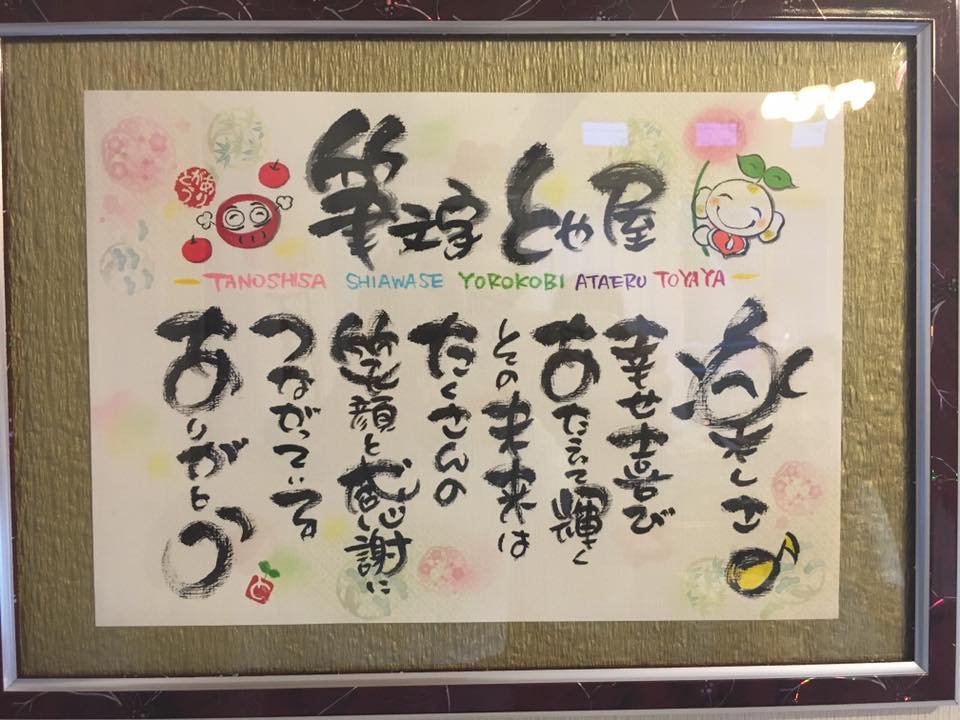 ありがとう
筆文字 とや屋
TANOSHISA SHIAWASE YOROKOBI ATAERU TOYAYA
楽しさ
幸せ喜び
あたえて輝く
その未来は
たくさんの
笑顔と感謝に
つながっている
ありがとう